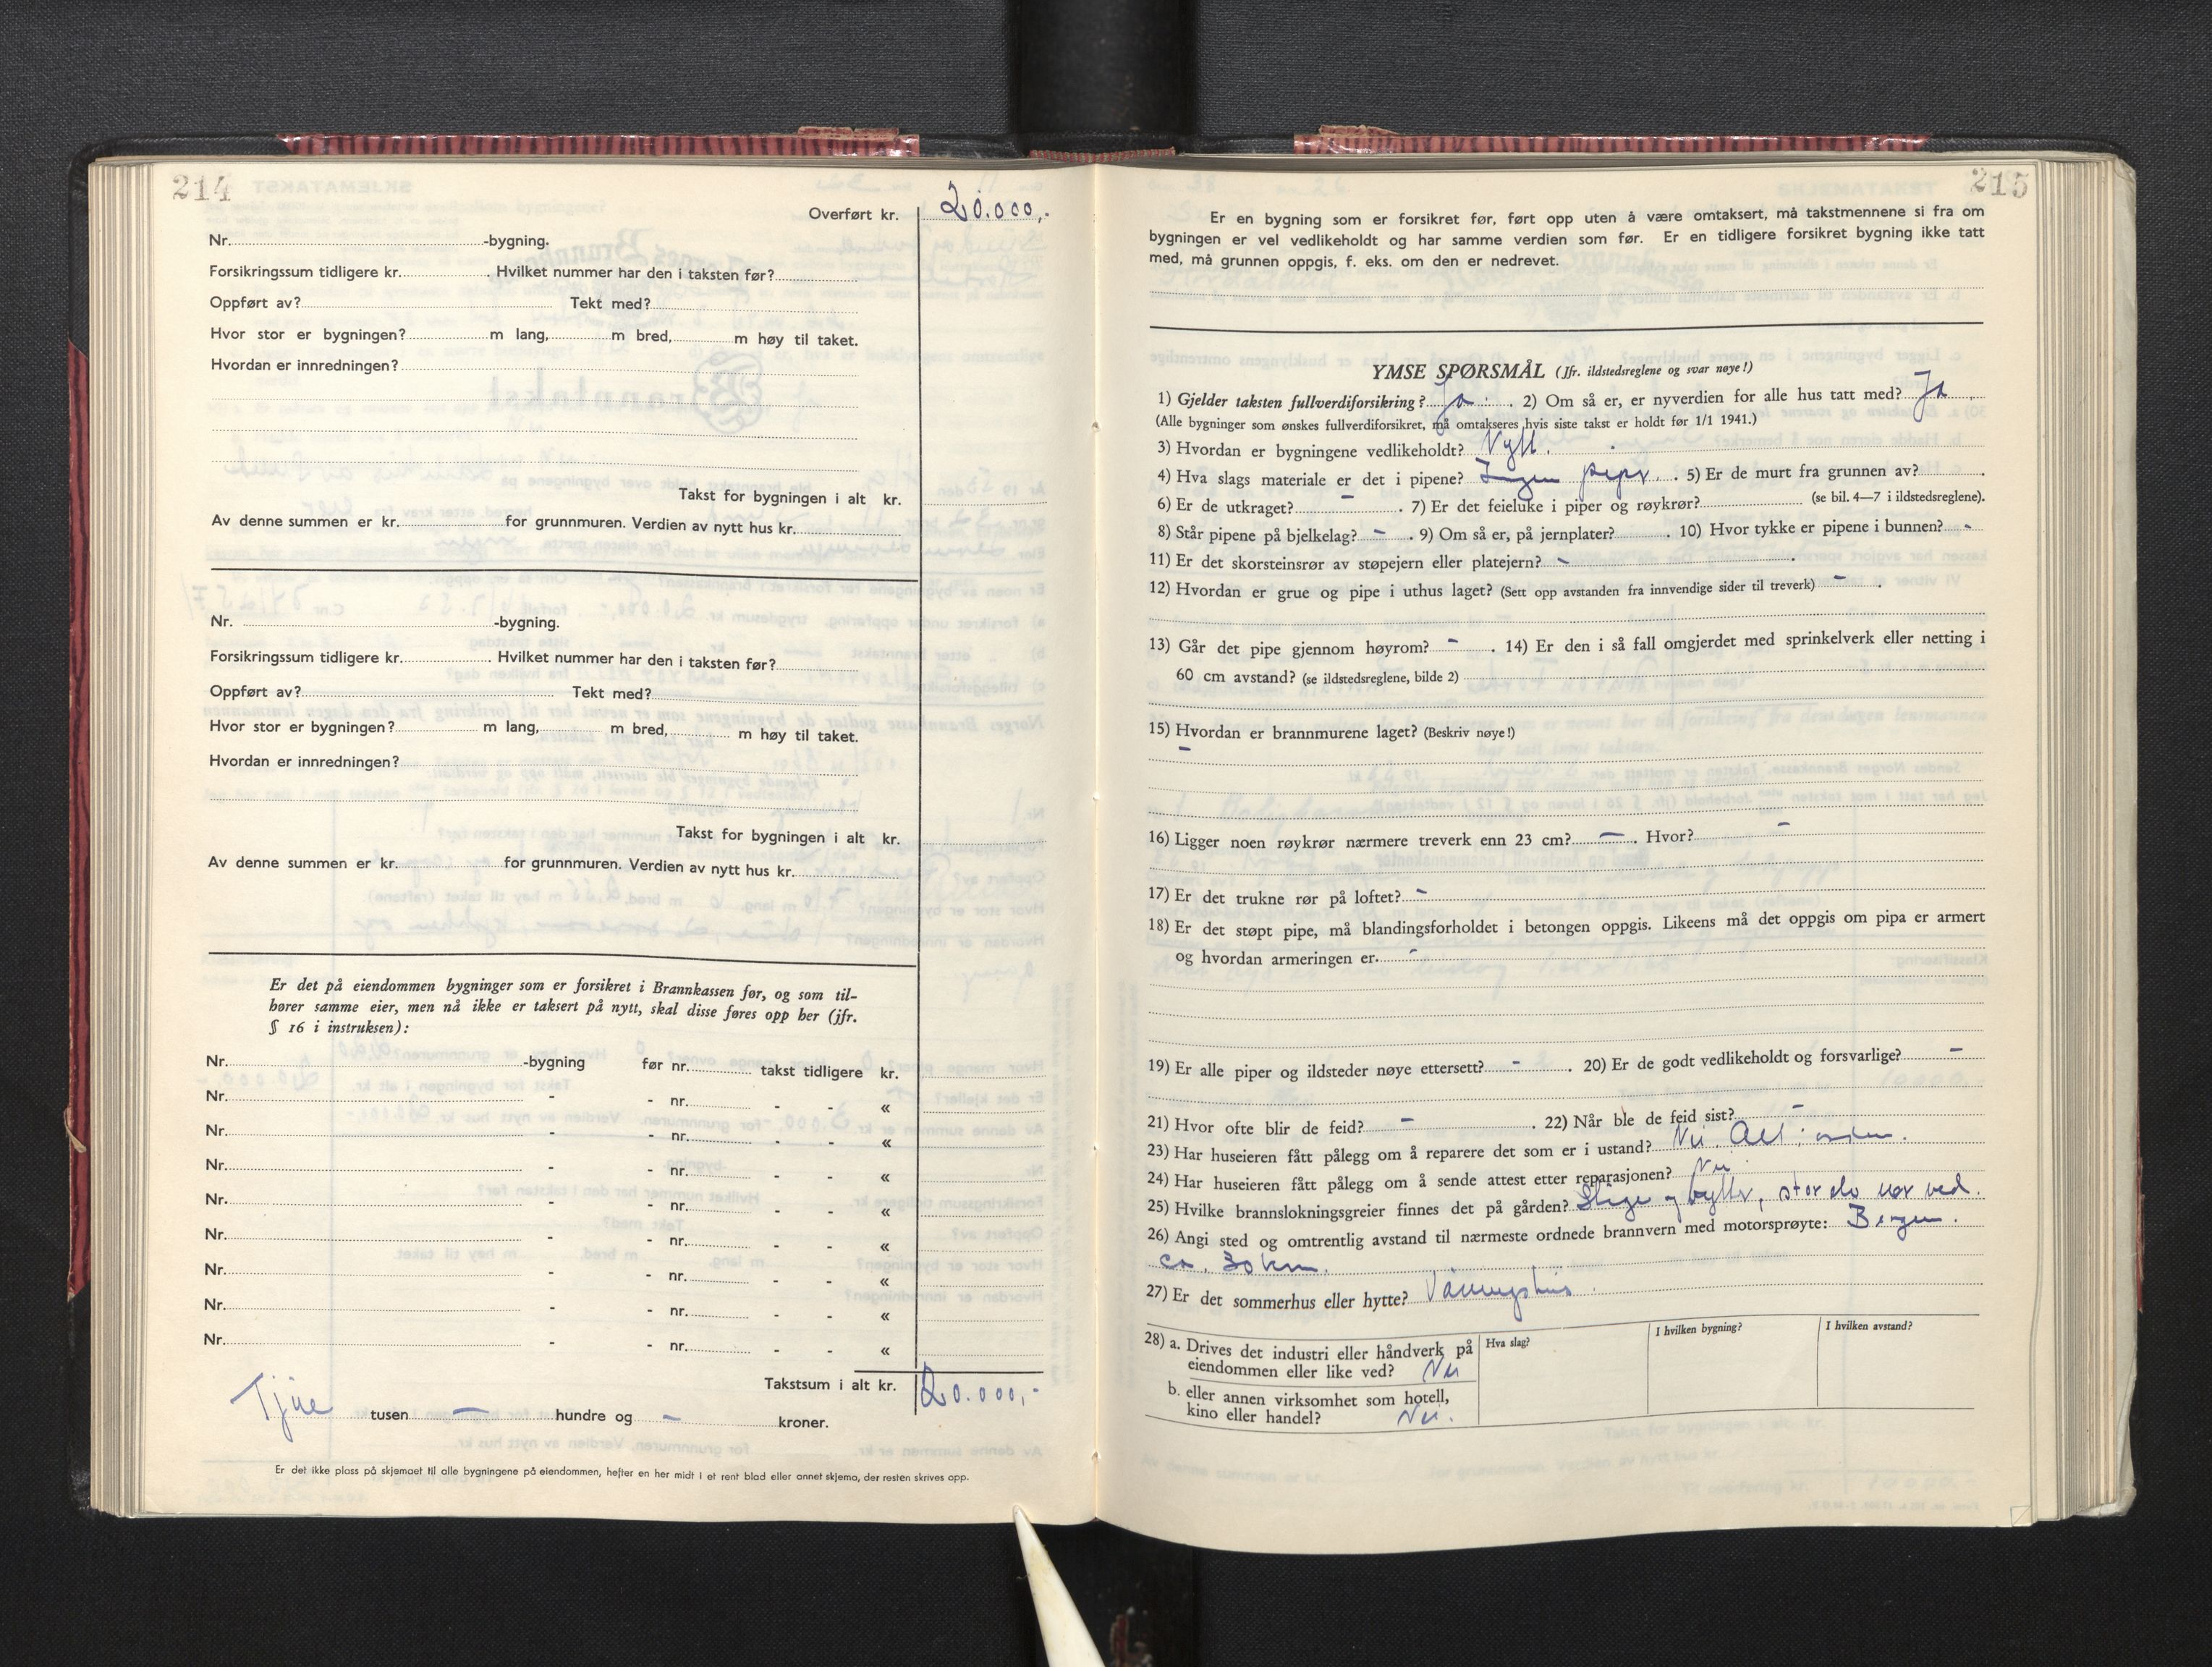 214
Overført kr. 20.000,-
Nr. -bygning.
Forsikringssum tidligere kr. . Hvilket nummer har den i taksten før?
Oppført av? Tekt med?
Hvor stor er bygningen? m lang, m bred, m høy til taket.
Hvordan er innredningen?
Takst for bygningen i alt kr.
Av denne summen er kr. for grunnmuren. Verdien av nytt hus kr.
Nr. -bygning.
Forsikringssum tidligere kr. . Hvilket nummer har den i taksten før?
Oppført av? Tekt med?
Hvor stor er bygningen? m lang, m bred, m høy til taket.
Hvordan er innredningen?
Takst for bygningen i alt kr.
Av denne summen er kr. for grunnmuren. Verdien av nytt hus kr.
Er det på eiendommen bygninger som er forsikret i Brannkassen før, og som til-
hører samme eier, men nå ikke er taksert på nytt, skal disse føres opp her (jfr.
§ 16 i instruksen):
Nr. -bygning før nr. takst tidligere kr.
Nr. - - nr. - - «
Nr. - - nr. - - «
Nr. - - nr. - - «
Nr. - - nr. - - «
Nr. - - nr. - - «
Nr. - - nr. - - «
Nr. - - nr. - - «
Nr. - - nr. - - «
Takstsum i alt kr. 20.000,-
Tjue tusen — hundre og — kroner.
Er det ikke plass på skjemaet til alle bygningene på eiendommen, hefter en her midt i et rent blad eller annet skjema, der resten skrives opp.
215
Er en bygning som er forsikret før, ført opp uten å være omtaksert, må takstmennene si fra om
bygningen er vel vedlikeholdt og har samme verdien som før. Er en tidligere forsikret bygning ikke tatt
med, må grunnen oppgis, f. eks. om den er nedrevet.
YMSE SPØRSMÅL (Jfr. ildstedsreglene og svar nøye!)
1) Gjelder taksten fullverdiforsikring? Ja . 2) Om så er, er nyverdien for alle hus tatt med? Ja
(Alle bygninger som ønskes fullverdiforsikret, må omtakseres hvis siste takst er holdt før 1/1 1941.)
3) Hvordan er bygningene vedlikeholdt? Nytt.
4) Hva slags materiale er det i pipene? Ingen piper. 5) Er de murt fra grunnen av?
6) Er de utkraget? - . 7) Er det feieluke i piper og røykrør? (se bil. 4—7 i ildstedsreglene).
8) Står pipene på bjelkelag? - . 9) Om så er, på jernplater? . 10) Hvor tykke er pipene i bunnen? -
11) Er det skorsteinsrør av støpejern eller platejern? -
12) Hvordan er grue og pipe i uthus laget? (Sett opp avstanden fra innvendige sider til treverk) - .
13) Går det pipe gjennom høyrom? - . 14) Er den i så fall omgjerdet med sprinkelverk eller netting i
60 cm avstand? (se ildstedsreglene, bilde 2)
15) Hvordan er brannmurene laget? (Beskriv nøye!)
-
16) Ligger noen røykrør nærmere treverk enn 23 cm? — . Hvor? -
17) Er det trukne rør på loftet? -
18) Er det støpt pipe, må blandingsforholdet i betongen oppgis. Likeens må det oppgis om pipa er armert
og hvordan armeringen er. -
19) Er alle piper og ildsteder nøye ettersett? - . 20) Er de godt vedlikeholdt og forsvarlige? -
21) Hvor ofte blir de feid? - . 22) Når ble de feid sist? -
23) Har huseieren fått pålegg om å reparere det som er i ustand? Nei. Alt i orden.
24) Har huseieren fått pålegg om å sende attest etter reparasjonen? Nei
25) Hvilke brannslokningsgreier finnes det på gården? Stige og bøtter, stor elv nær ved.
26) Angi sted og omtrentlig avstand til nærmeste ordnede brannvern med motorsprøyte: Bergen.
ca. 30 km.
27) Er det sommerhus eller hytte? Våningshus
28) a. Drives det industri eller håndverk på eiendommen eller like ved? Nei
Hva slag? I hvilken bygning? I hvilken avstand?
b. eller annen virksomhet som hotell,
kino eller handel? Nei.